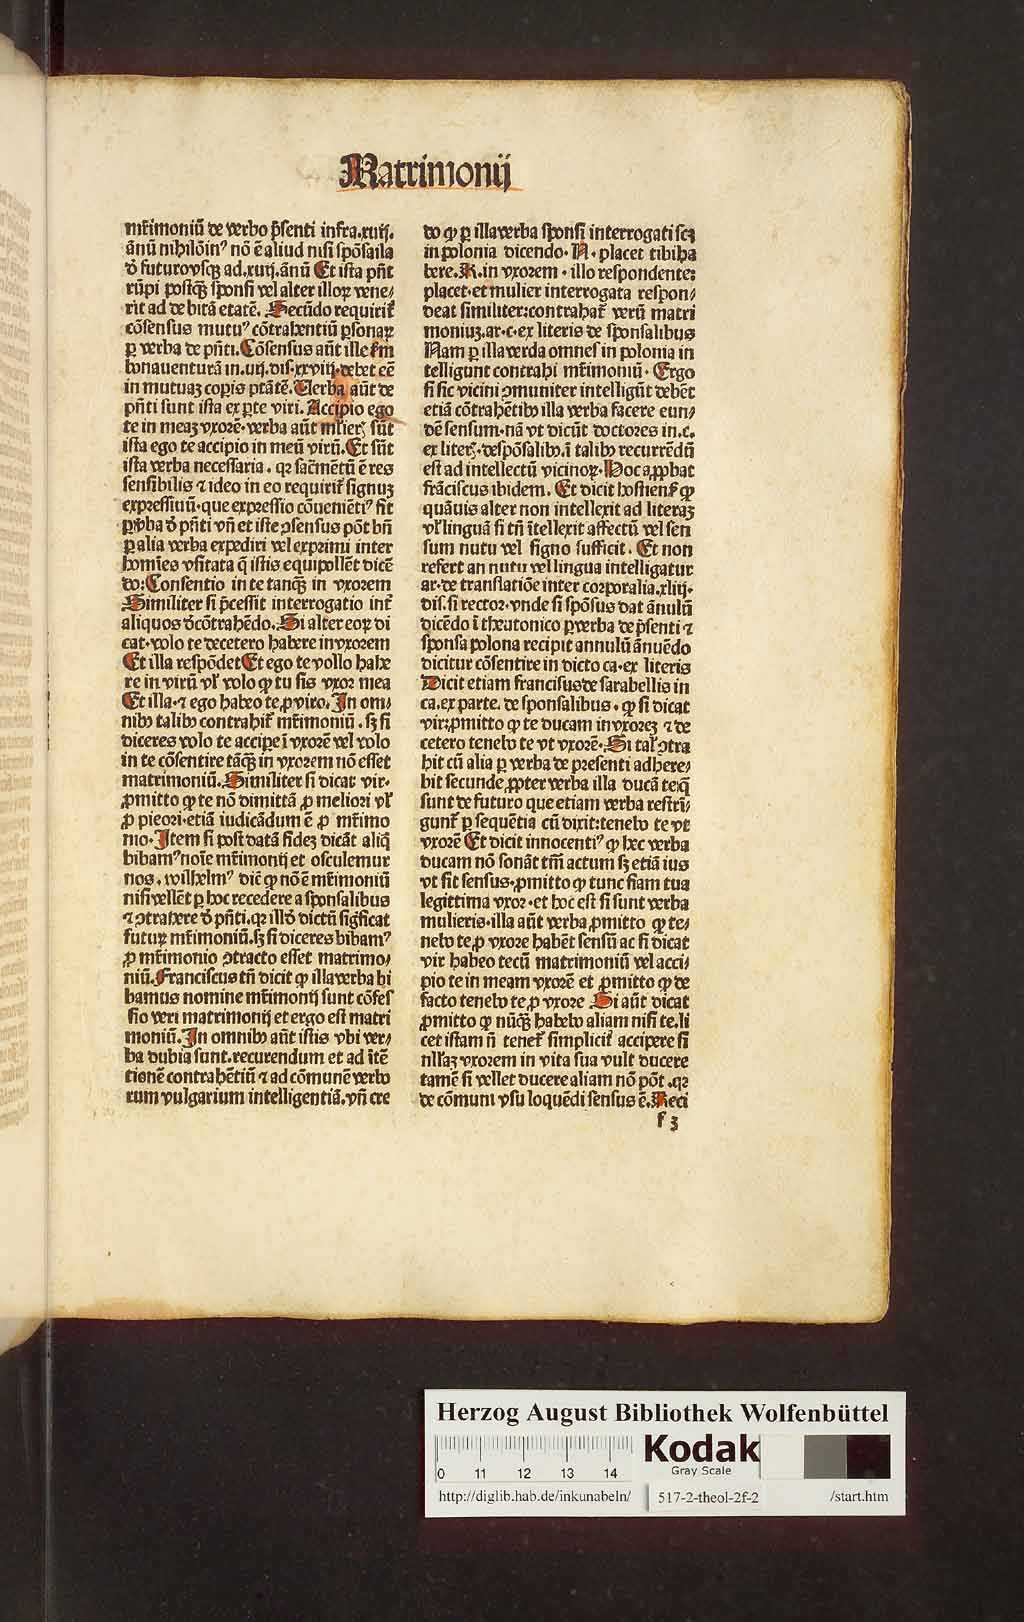 Matrimonij
mr̄imoniū de verbo p̄senti infra.xuij.
ānū nihilōin⁹ nō ē aliud nisi spōsaila
ď futurovsqꝫ ad.xuij.ānū Et ista pn̄t
rūpi postqꝫ sponsi vel alter illoꝝ vene⸗
rit ad de bitā etatē. Secūdo requiriť
cōsensus mutu⁹ cōtrahentiū ꝑsonaꝝ
ꝑ verba de pn̄ti. Cōsensus aūt ille ẜm
bonauenturā in.iiij.dis.xxviij.debet eē
in mutuaꝫ copĩs ptātē. Verba aūt de
pn̄ti sunt ista ex ꝑte viri. Accipio ego
te in meaꝫ vxorē. verba aūt mlierꝭ sūt
ista ego te accipio in meū virū. Et sūt
ista verba necessaria. qꝛ sacm̄ētū ē res
sensibilis ⁊ ideo in eo requiriť signuꝫ
expressiuū. que expressio cōuenieti⁹ fit
ꝑ v̄ba ď pn̄ti vn̄ et iste ꝯsensus pōt bn̄
ꝑ alia verba expediri vel exprimi inter
homīes vsitata q̄ istis equipollēt dicē
do: Consentio in te tanqꝫ in vxorem
Similiter si p̄cessit interrogatio inť
aliquos ď cōtrahēdo. Si alter eoꝝ di
cat. volo te decetero habere in vxorem
Et illa respōdet Et ego te vollo habe
re in virū vľ volo ꝙ tu sis vxor mea
Et illa. ⁊ ego habeo te ꝓ viro. In om⸗
nibꝰ talibꝰ contrahiť mr̄imoniū. sꝫ si
diceres volo te accipe ī vxorē vel volo
in te cōsentire tāqꝫ in vxorem nō esset
matrimoniū. Similiter si dicat vir.
ꝓmitto ꝙ te nō dimittā ꝓ meliori vľ
ꝓ pieori. etiā iudicādum ē ꝓ mr̄imo
nio. Item si post datā fideꝫ dicāt aliq̄
bibam⁹ noīe mr̄imonij et osculemur
nos. wilhelm⁹ dic̄ ꝙ nō ē mr̄imoniū
nisi vellēt ꝑ hoc recedere a sponsalibus
⁊ ꝯtrahere ď pn̄ti. qꝛ illď dictū sigficat
futuꝝ mr̄imoniū. sꝫ si diceres bibam⁹
ꝓ mr̄imonio ꝯtracto esset matrimo⸗
niū. Franciscus tn̄ dicit ꝙ illa verba bi
bamus nomine mr̄imonij sunt cōfes
sio veri matrimonij et ergo est matri
moniū. In omnibꝰ aūt istis vbi ver⸗
ba dubia sunt. recurendum et ad itē
tionē contrahētiū ⁊ ad cōmunē verbo
rum vulgarium intelligentiā. vn̄ cre
do ꝙ ꝑ illa verba sponsi interrogati scꝫ
in polonia dicendo. N. placet tibi ha
bere. K. in vxorem. illo respondente:
placet. et mulier interrogata respon⸗
deat similiter: contrahať verū matri
moniuꝫ. ar. c. ex literis de sponsalibus
Nam ꝑ illa verda omnes in polonia in
telligunt contrahi mr̄imoniū. Ergo
si sic vicini ꝯmuniter intelligūt debēt
etiā cōtrahētibꝰ illa verba facere eun⸗
dē sensum. nā vt dicūt doctores in. c.
ex literꝭ. de spōsalibꝰ. ī talibꝰ recurrēdū
est ad intellectū vicinoꝝ. Hoc aꝓbat
frāciscus ibidem. Et dicit hostienẜ ꝙ
quāuis alter non intellexit ad literaꝫ
vľ linguā si tn̄ ītellexit affectū vel sen
sum nutu vel signo sufficit. Et non
refert an nutu vel lingua intelligatur
ar. de translatiōe inter corporalia. xliij.
dis. si rector. vnde si spōsus dat ānulū
dicēdo ī theutonico ꝑ verba de p̄senti ⁊
sponsa polona recipit annulū ānuēdo
dicitur cōsentire in dicto ca. ex literis
Dicit etiam francisus de sarabellis in
ca. ex parte. de sponsalibus. ꝙ si dicat
vir: ꝓmitto ꝙ te ducam in vxoreꝫ ⁊ de
cetero tenebo te vt vxorē. Si tal' ꝯtra
hit cū alia ꝑ verba de presenti adhere⸗
bit secunde ꝓpter verba illa ducā te qꝫ
sunt de futuro que etiam verba restrī⸗
gunť ꝑ sequētia cū dixit: tenebo te vt
vxorē Et dicit innocenti⁹ ꝙ hec verba
ducam nō sonāt tm̄ actum sꝫ etiā ius
vt sit sensus. ꝓmitto ꝙ tunc fiam tua
legittima vxor. et hoc est si sunt verba
mulieris. illa aūt verba ꝓmitto ꝙ te⸗
nebo te ꝓ vxore habēt sensū ac si dicat
vir habeo tecū matrimoniū vel acci⸗
pio te in meam vxorē et ꝓmitto ꝙ de
facto tenebo te ꝓ vxore Si aūt dicat
ꝓmitto ꝙ nūqꝫ habebo aliam nisi te. li
cet istam n̄ teneť simpliciť accipere si
nllaꝫ vxorem in vita sua vult ducere
tamē si vellet ducere aliam nō pōt. qꝛ
de cōmuni vsu loquēdi sensus ē. Reci
f 3
Herzog August Bibliothek Wolfenbüttel
Kodak
Gray Scale
0 11 12 13 14
http://diglib.hab.de/inkunabeln/ 517-2-theol-2f-2 /start.htm